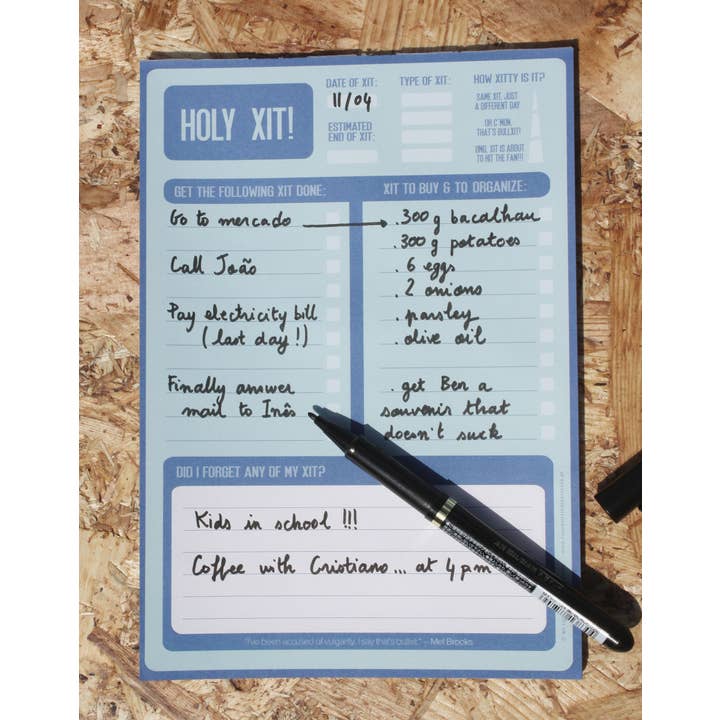 HOLY XIT!
DATE OF XIT:
11/04
ESTIMATED
END OF XIT:
TYPE OF XIT:
HOW XITTY IS IT?
SAME XIT, JUST
A DIFFERENT DAY
OH C'MON,
THAT'S BULLXIT!
OMG, XIT IS ABOUT
TO HIT THE FAN!!!
GET THE FOLLOWING XIT DONE:
Go to mercado
Call João
Pay electricity bill
(last day!)
Finally answer
mail to Inês
XIT TO BUY & TO ORGANIZE:
.300 g bacalhau
.300 g potatoes
. 6 eggs
. 2 onions
. parsley
. olive oil
. get Ben a
souvenir that
doesn't suck
DID I FORGET ANY OF MY XIT?
Kids in school !!!
Coffee with Cristiano... at 4 pm
"I've been accused of vulgarity. I say that's bullxit." – Mel Brooks